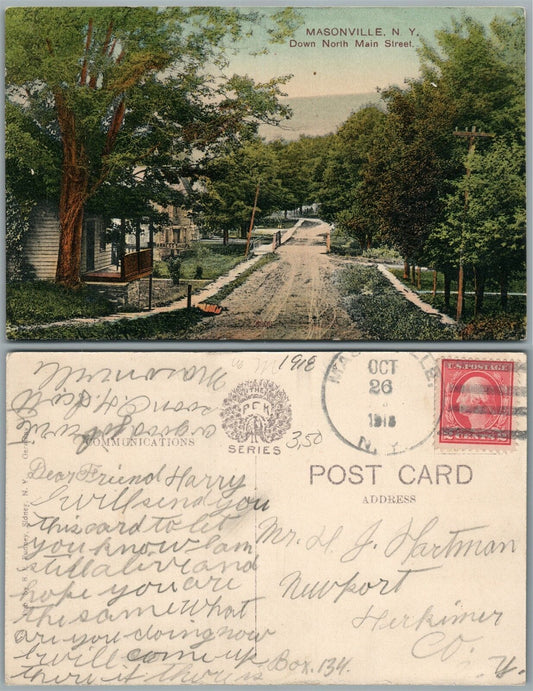 MASONVILLE, N. Y.
Down North Main Street.
1918
3,50
THE
P F K
SERIES
COMMUNICATIONS
POST CARD
ADDRESS
MASONVILLE
OCT
26
1918
N.Y.
U.S. POSTAGE
2 CENTS 2
Dear Friend Harry
I will send you
this card to let
you know I am
still alive and
hope you are
the same What
are you doing now
I will come up
there if there is
Mr. H. J. Hartman
Newport
Herkimer
Co.
N. Y.
Box. 134.
Masonville